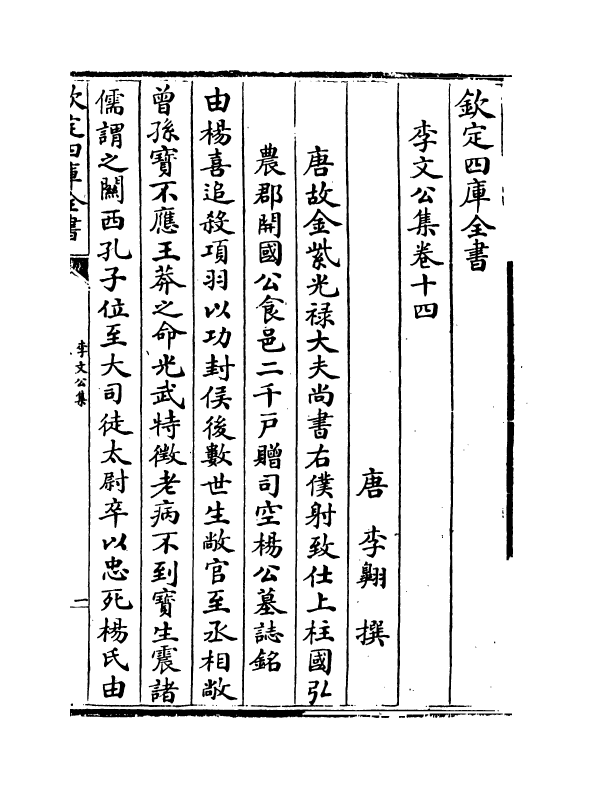 欽定四庫全書
李文公集卷十四
唐 李翺 撰
唐故金紫光禄大夫尚書右僕射致仕上柱國弘
農郡開國公食邑二千戸贈司空楊公墓誌銘
由楊喜追殺項羽以功封侯後數世生敞官至丞相敞
曾孫寶不應王莽之命光武特徴老病不到寶生震諸
儒謂之關西孔子位至大司徒太尉卒以忠死楊氏由
欽定四庫全書
李文公集